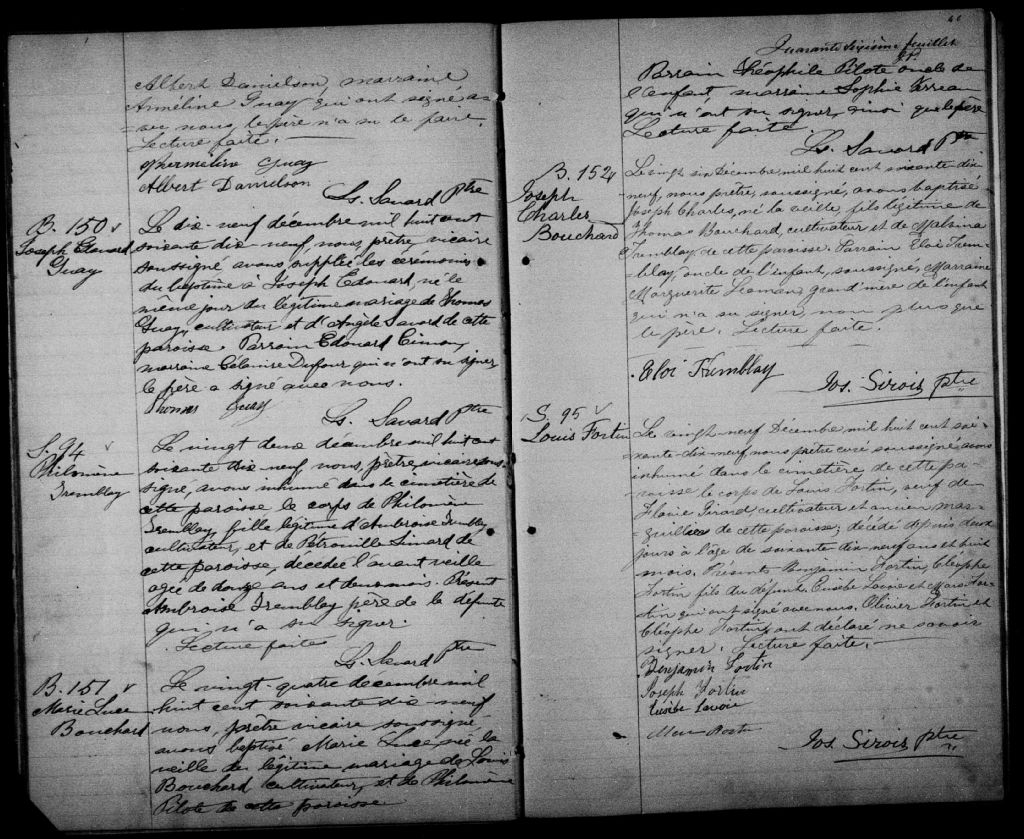 Albert Danielson, marraine
Arméline Guay qui ont signé a-
-vec nous, le père n'a su le faire.
Lecture faite.
Guay
Albert Danielson
Ls. Savard Ptre
B. 150
Joseph Edouard
Guay
Le dix-neuf décembre mil huit cent
soixante dix-neuf, nous, prêtre vicaire
soussigné avons suppléé les cérémonies
du baptême à Joseph Edouard, né le
même jour du légitime mariage de Thomas
Guay, cultivateur et d'Angèle Savard de cette
paroisse. Parrain Edouard Simon,
marraine Dufour qui n'ont su signer
le père a signé avec nous.
Thomas Guay
Ls. Savard Ptre
S. 94
Philomène
Tremblay
Le vingt deux décembre mil huit cent
soixante dix-neuf, nous, prêtre, vicaire sous-
signé, avons inhumé dans le cimetière de
cette paroisse le corps de Philomène
Tremblay, fille légitime d'Ambroise Tremblay
cultivateur, et de Pétronille Simard de
cette paroisse, décédée l'avant veille
agée de douze ans et deux mois. Présent
Ambroise Tremblay père de la défunte
qui n'a su signer.
Lecture faite
Ls. Savard ptre
B. 151
Marie Luce
Bouchard
Le vingt-quatre décembre mil
huit cent soixante dix-neuf
nous, prêtre vicaire soussigné
avons baptisé Marie Luce, née la
veille du légitime mariage de Louis
Bouchard cultivateur, et de Philomène
Pilote de cette paroisse
46
Quarante sixième feuillet
J.P.
Parrain Théophile Pilote oncle de
l'enfant marraine Sophie
qui n'ont su signer, ainsi que le père
Lecture faite.
Ls. Savard Ptre
B. 152
Joseph
Charles
Bouchard
Le vingt six Décembre, mil huit cent soixante dix
neuf, nous prêtre, soussigné, avons baptisé
Joseph Charles, né la veille, fils légitime de
Thomas Bouchard, cultivateur et de Malvina
Tremblay de cette paroisse. Parrain Eloi Trem-
blay, oncle de l'enfant, soussigné, Marraine
Marguerite grand'mère de l'enfant
qui n'a su signer, non plus que
le père. Lecture faite.
Eloi Tremblay
Jos. Sirois ptre
S. 95
Louis Fortin
Le vingt-neuf Décembre mil huit cent soi-
xante-dix-neuf nous prêtre curé soussigné, avons
inhumé dans le cimetière de cette pa-
-roisse le corps de Louis Fortin, veuf de
Flavie Girard, cultivateur et ancien mar-
-guillier de cette paroisse, décédé depuis deux
jours à l'âge de soixante dix-neuf ans et huit
mois. Présents Benjamin Fortin, Cléophe
Fortin fils du défunt, Eusèbe Lavoie et For-
tin qui ont signé avec nous, Olivier Fortin et
Cléophe Fortin, ont déclaré ne savoir
signer. Lecture faite.
Benjamin Fortin
Joseph Fortin
Eusèbe Lavoie
Jos. Sirois ptre